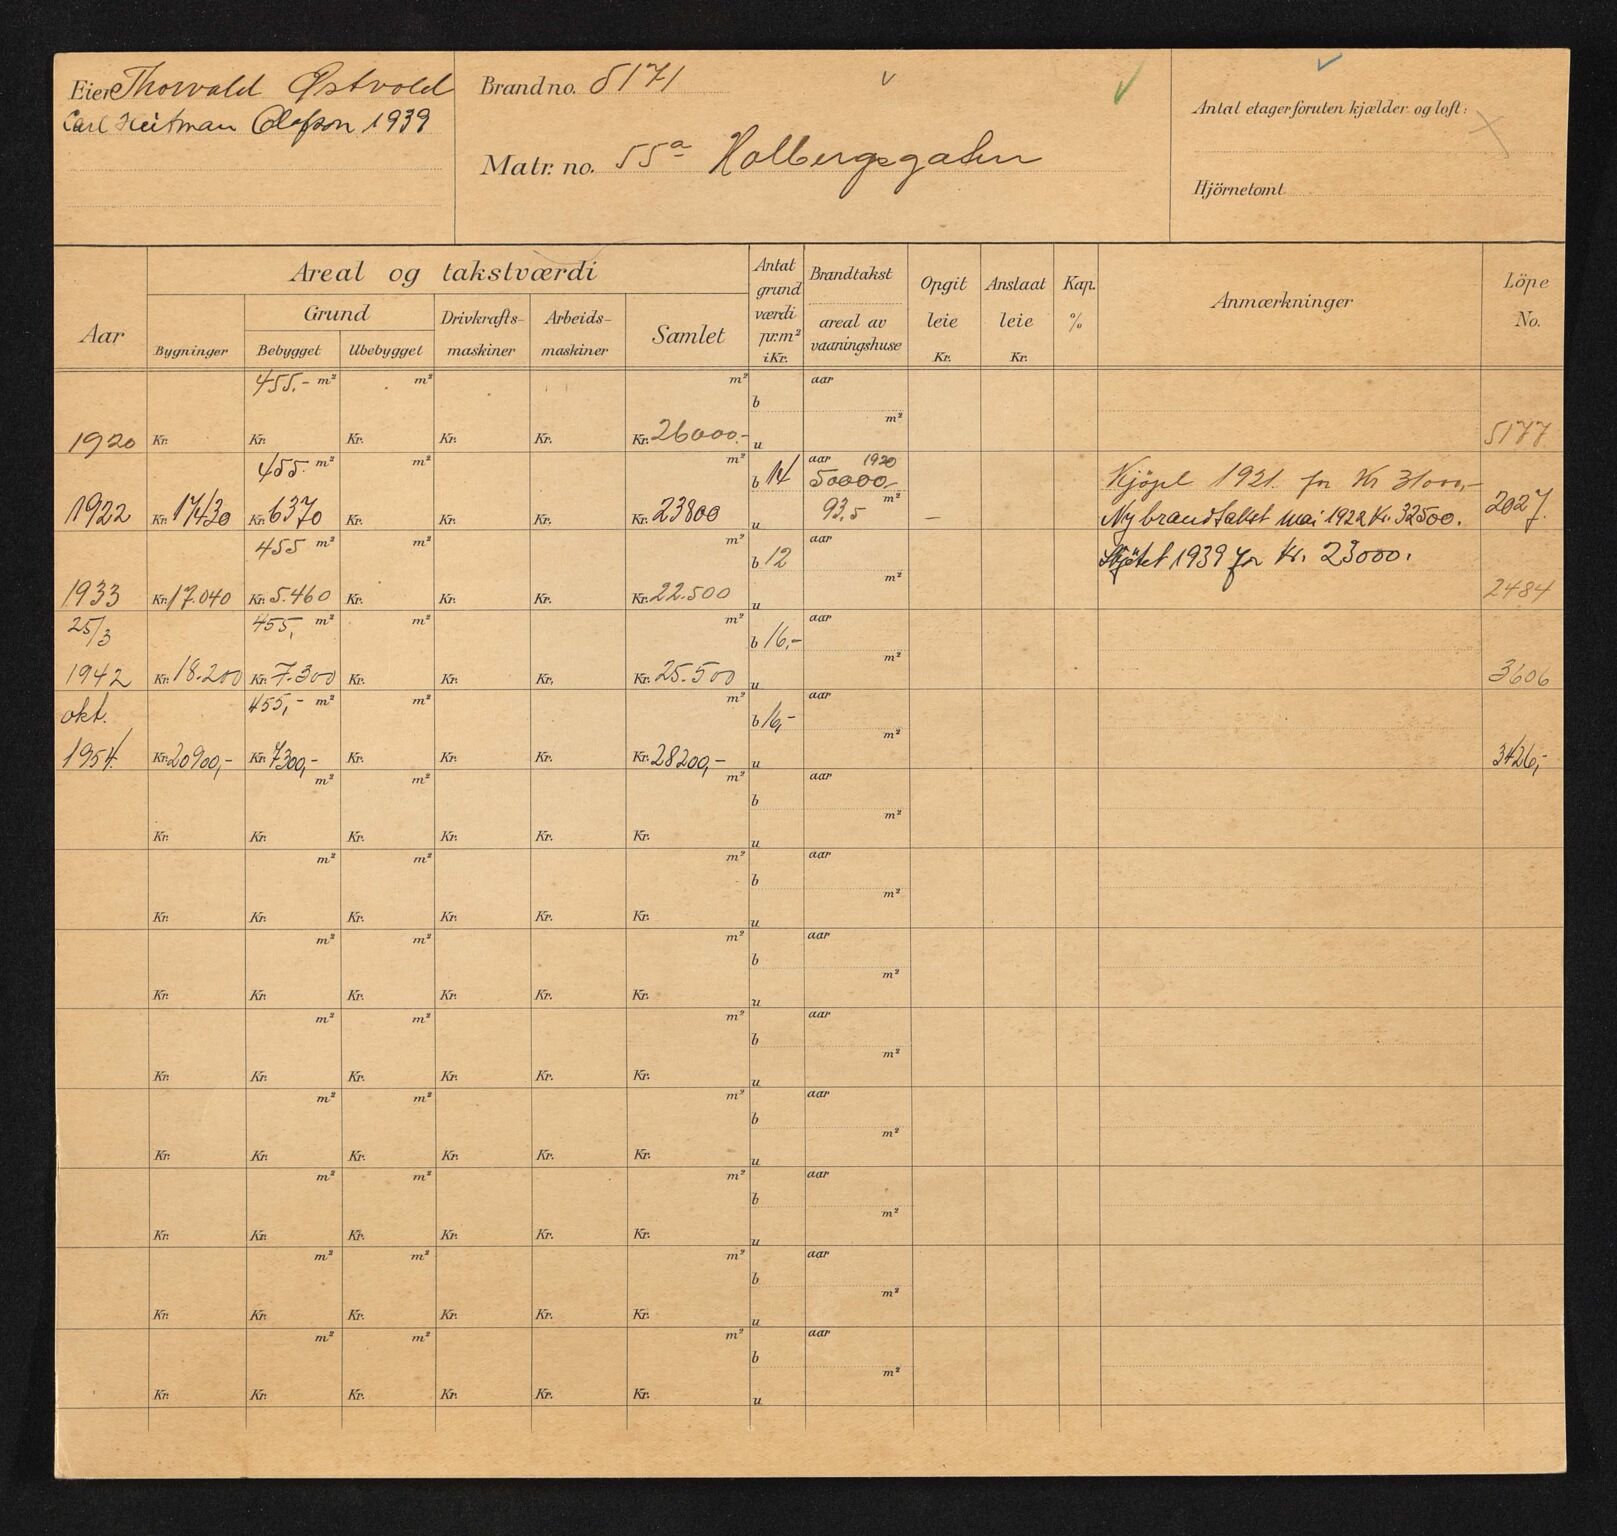 Eier Thorvald Østvold
Carl Heitman Olafson 1939
Brand no. 8171
Matr. no. 55a Holbergsgaten
Antal etager foruten kjælder og loft:
Hjörnetomt
Aar
Areal og takstværdi
Grund
Bygninger
Bebygget
Ubebygget
Drivkrafts-
maskiner
Arbeids-
maskiner
Samlet
Antat
grund
værdi
pr. m²
i Kr.
Brandtakst
areal av
vaaningshuse
Opgit
leie
Kr.
Anslaat
leie
Kr.
Kap.
%
Anmærkninger
Löpe
No.
455.- m² m² m² aar
b
m²
1920 Kr. Kr. Kr. Kr. Kr. Kr. 26000.- u 5177
455. m² m² m² b 14 aar 1920
50000,- Kjöpt 1921. for Kr 31000,-
m²
1922 Kr. 17430 Kr. 6370 Kr. Kr. Kr. Kr. 23800 u 93,5 – Ny brandtakst mai 1922 Kr. 32500. 2027.
455 m² m² m² b 12 aar Skjötet 1939 for Kr. 23000.
m²
1933 Kr. 17.040 Kr. 5.460 Kr. Kr. Kr. Kr. 22.500 u 2484
25/3 455, m² m² m² b 16,- aar
m²
1942 Kr. 18.200 Kr. 7.300 Kr. Kr. Kr. Kr. 25.500 u 3606
okt. 455,- m² m² m² b 16,- aar
m²
1954 Kr. 20900,- Kr. 7300,- Kr. Kr. Kr. Kr. 28200,- u 3426,-
m² m² m² aar
b
m²
Kr. Kr. Kr. Kr. Kr. Kr. u
m² m² m² aar
b
m²
Kr. Kr. Kr. Kr. Kr. Kr. u
m² m² m² aar
b
m²
Kr. Kr. Kr. Kr. Kr. Kr. u
m² m² m² aar
b
m²
Kr. Kr. Kr. Kr. Kr. Kr. u
m² m² m² aar
b
m²
Kr. Kr. Kr. Kr. Kr. Kr. u
m² m² m² aar
b
m²
Kr. Kr. Kr. Kr. Kr. Kr. u
m² m² m² aar
b
m²
Kr. Kr. Kr. Kr. Kr. Kr. u
m² m² m² aar
b
m²
Kr. Kr. Kr. Kr. Kr. Kr. u